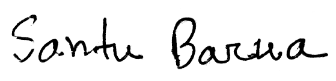 Santu Barua